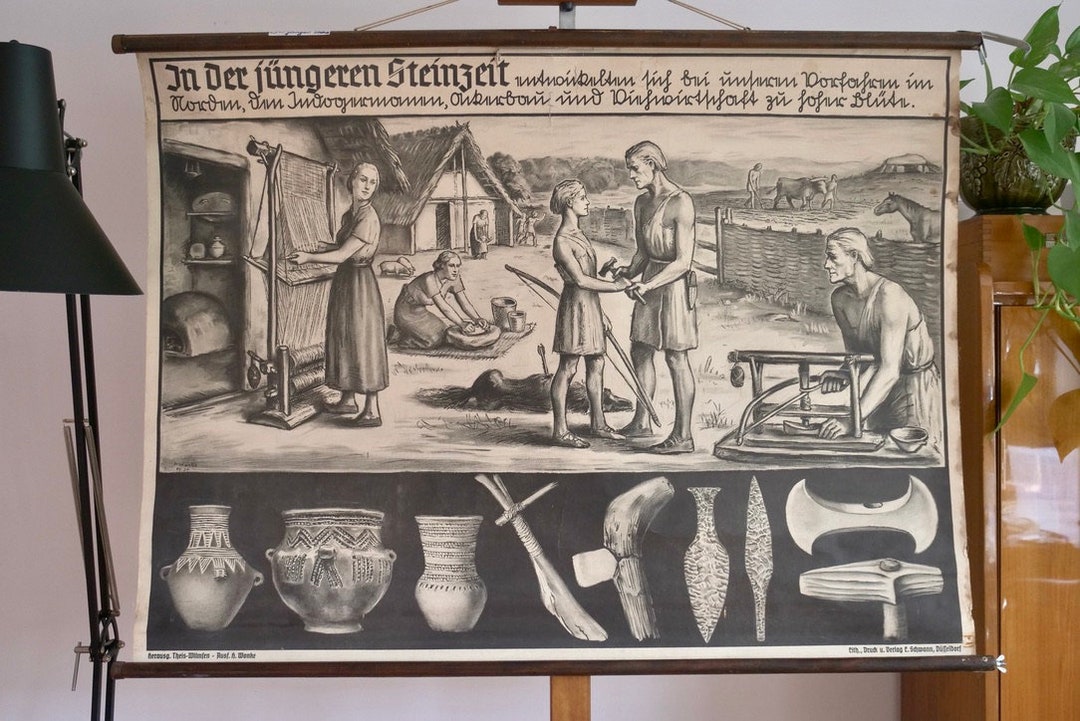 In der jüngeren Steinzeit entwickelten sich bei unseren Vorfahren im
Norden, den Indogermanen, Ackerbau und Viehwirtschaft zu hoher Blüte.
Herausg. Theis-Wilmsen - Ausf. H. Wanke
Lith., Druck u. Verlag L. Schwann, Düsseldorf